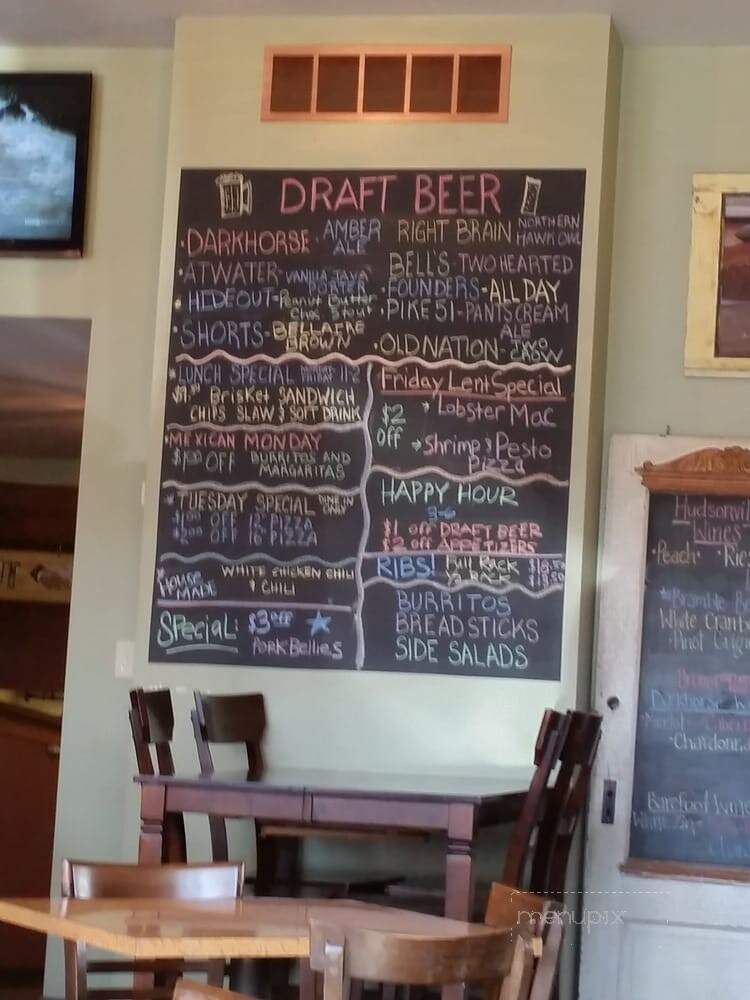 DRAFT BEER
•DARKHORSE - AMBER ALE
•ATWATER - VANILLA JAVA PORTER
•HIDEOUT - Peanut Butter Choc Stout
•SHORTS - BELLAIRE BROWN
RIGHT BRAIN NORTHERN HAWK OWL
BELLS - TWO HEARTED
•FOUNDERS - ALL DAY
•PIKE 51 - PANTS CREAM ALE
•OLD NATION -
LUNCH SPECIAL
BRISKET SANDWICH
CHIPS SLAW & SOFT DRINK
MEXICAN MONDAY
OFF BURRITOS AND MARGARITAS
TUESDAY SPECIAL DINE IN ONLY
OFF 12 PIZZA
OFF 16 PIZZA
HOUSE MADE WHITE CHICKEN CHILI & CHILI
SPECIAL: $3 OFF
PORK BELLIES
Friday Lent Special
$2 OFF
→ Lobster Mac
→ Shrimp & Pesto Pizza
HAPPY HOUR
3-6
$1 off DRAFT BEER
$2 off APPETIZERS
RIBS! Full RACK
½ RACK
BURRITOS
BREADSTICKS
SIDE SALADS
Wines
•Peach
Bramble
White Cranb
•Pinot Grig
•Chardon
Barefoot Win
menupix